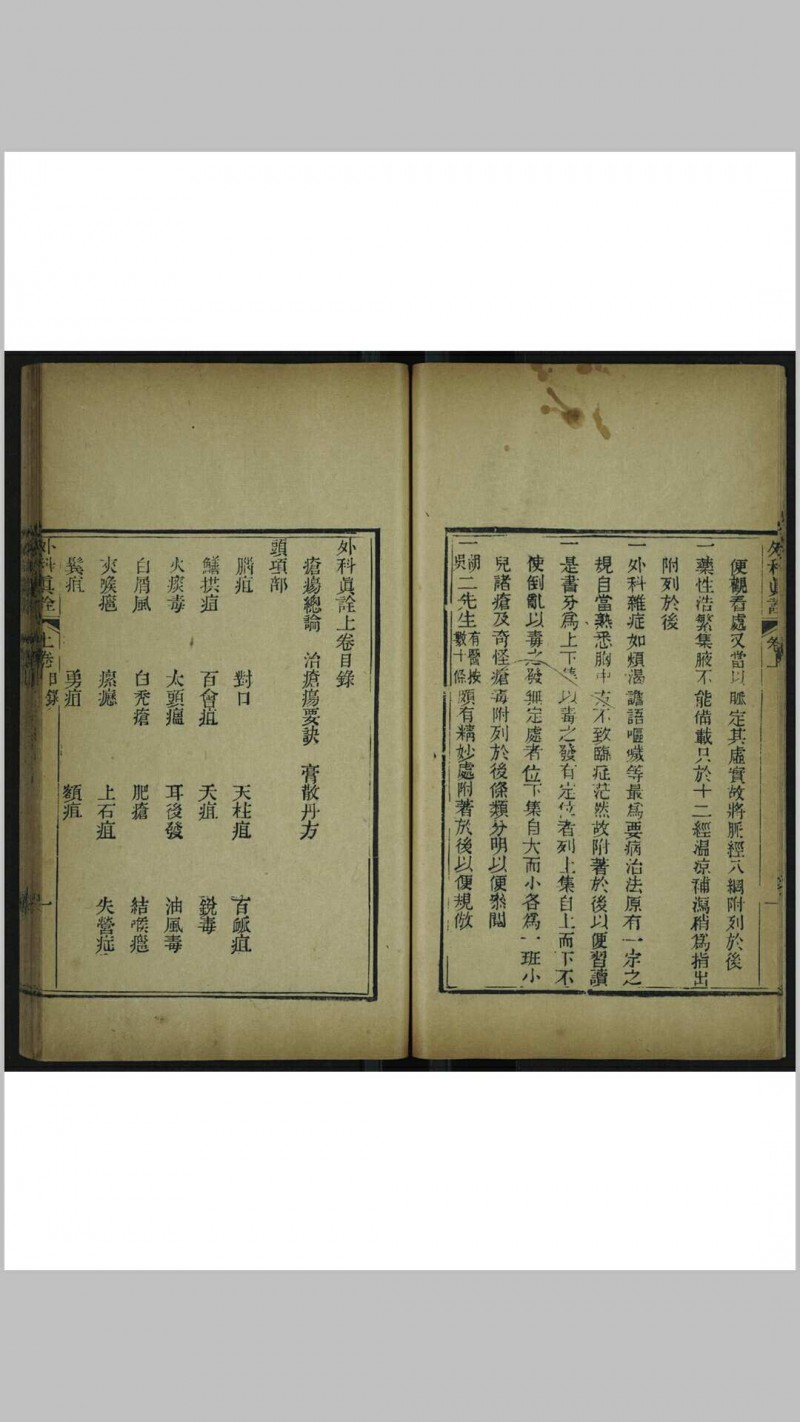 外科眞詮 卷上
便觀看處又當以脈定其虛實故將脈經八綱附列於後
一藥性浩繁集腋不能備載只於十二經溫凉補瀉稍爲指出
附列於後
一外科雜症如煩渴譫語嘔噦等最爲要病治法原有一宗之
規自當熟悉胸中支不致臨症茫然故附著於後以便習讀
一是書分爲上下集以毒之發有定位者列上集自上而下不
使倒亂以毒之發無定處者位下集自大而小各爲一班小
兒諸瘡及奇怪瘡毒附列於後條類分明以便繙閱
一胡吳二先生有醫按數十條頗有精妙處附著於後以便規倣
外科眞詮上卷目錄
瘡瘍總論 治瘡瘍要訣 膏散丹方
頭項部
腦疽 對口 天柱疽 百脈疽
鱔拱疽 百會疽 天疽 銳毒
火痰毒 大頭瘟 耳後發 油風毒
白屑風 白禿瘡 肥瘡 結喉癰
夾喉癰 瘰癧 上石疽 失營症
鬂疽 勇疽 額疽
外科眞詮 上卷目錄 一